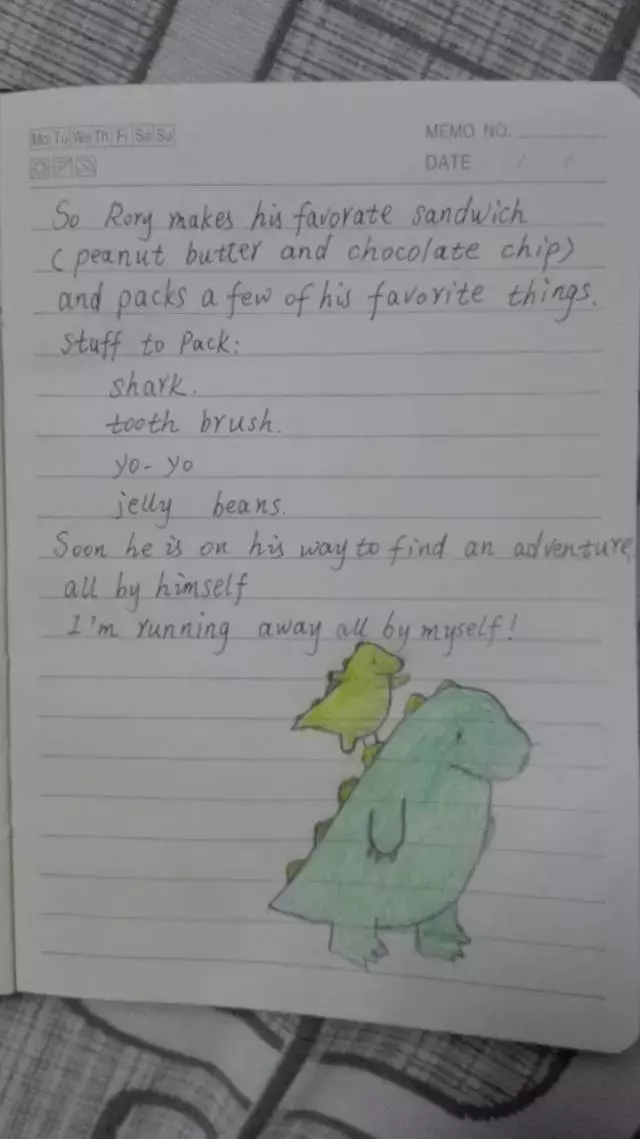 Mo Tu We Th Fi Sa Su
MEMO NO.
DATE / /
So Rory makes his favorate sandwich
(peanut butter and chocolate chip)
and packs a few of his favorite things.
Stuff to Pack:
shark.
tooth brush.
yo-yo
jelly beans.
Soon he is on his way to find an adventure
all by himself
I'm running away all by myself!